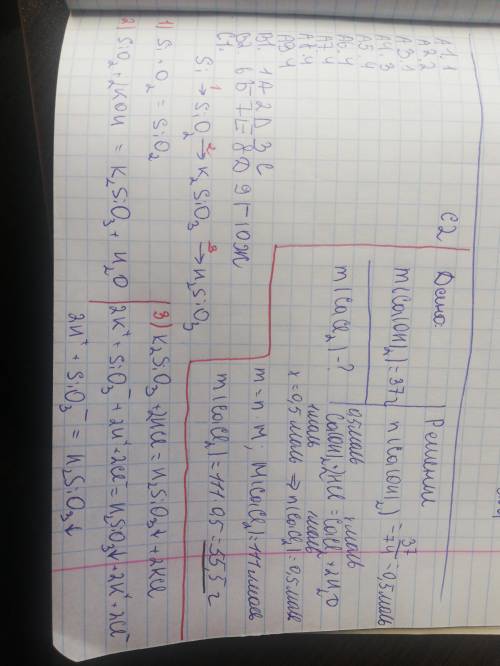 А1. 1
А2. 2
А3. 1
А4. 3
А5. 4
А6. 4
А7. 4
А8. 4
А9. 4
В1. 1А 2Д 3Е
В2 6Б 7Е 8Д 9Г 10Ж
С1.
Si →¹ SiO₂ →² K₂SiO₃ →³ H₂SiO₃
1) Si + O₂ = SiO₂
2) SiO₂ + 2KOH = K₂SiO₃ + H₂O
3) K₂SiO₃ + 2HCl = H₂SiO₃↓ + 2KCl
2K⁺ + SiO₃⁻ + 2H⁺ + 2Cl⁻ = H₂SO₃↓ + 2K⁺ + 2Cl⁻
2H⁺ + SiO₃⁻ = H₂SiO₃↓
С2
Дано:
m(Ca(OH)₂) = 37г
m(CaCl₂) - ?
Решение
n(Ca(OH)₂) = 37/74 = 0,5 моль
0,5моль х моль
Ca(OH)₂ + 2HCl = CaCl₂ + 2H₂O
1моль 1моль
x = 0,5 моль ⇒ n(CaCl₂) = 0,5 моль
m = n·M; M(CaCl₂) = 111 г/моль
m(CaCl₂) = 111·0,5 = 55,5 г